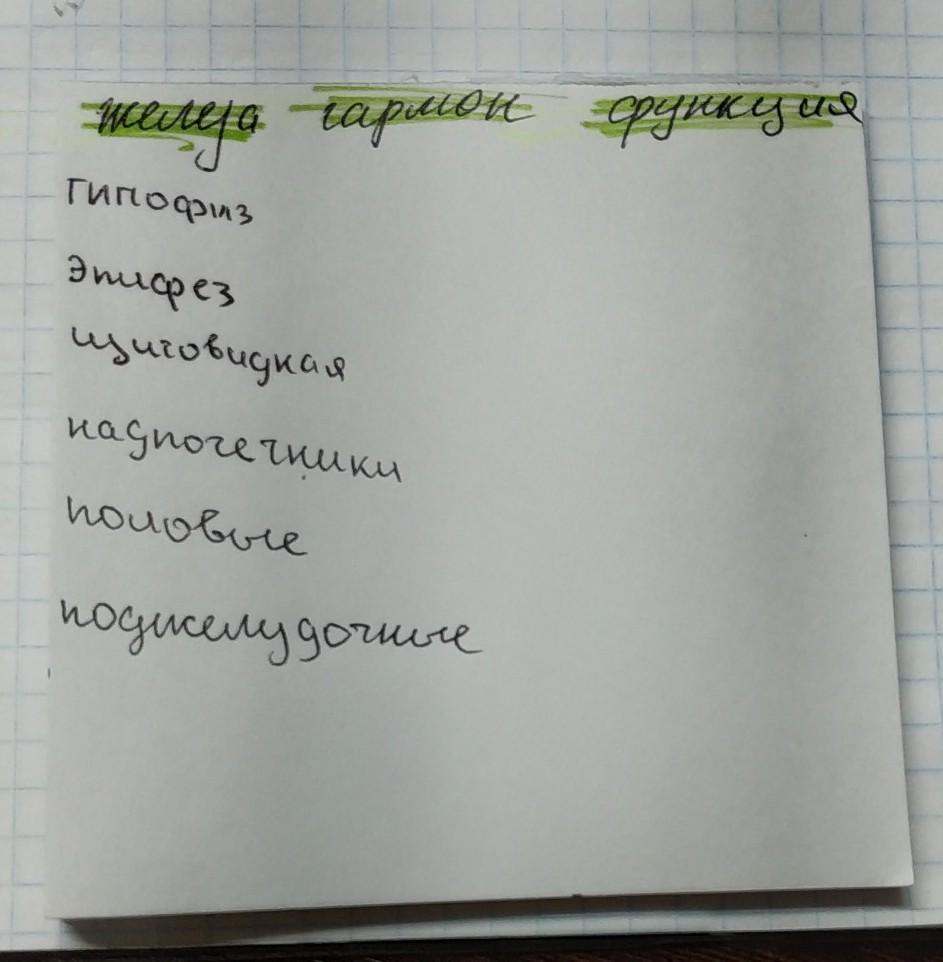 железа гармон функция
гипофиз
Эпифез
щитовидная
надпочечники
половые
поджелудочные